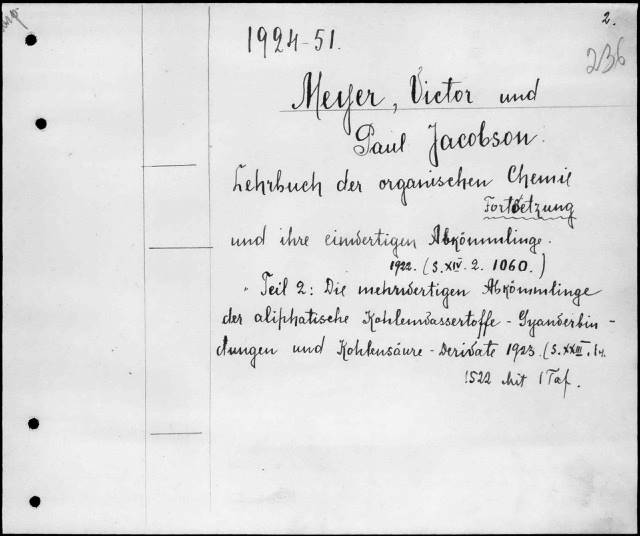 2.
1924-51.
236
Meyer, Victor und
Paul Jacobson.
Lehrbuch der organischen Chemie
Fortsetzung
und ihre einwertigen Abkömmlinge.
1922. (S. XIV. 2. 1060.)
" Teil 2: Die mehrwertigen Abkömmlinge
der aliphatische Kohlenwassterstoffe - Cyanverbin -
dungen und Kohlensäure - Derivate 1923. (S. XXIII. 1 u.
1522 Mit 1 Taf.